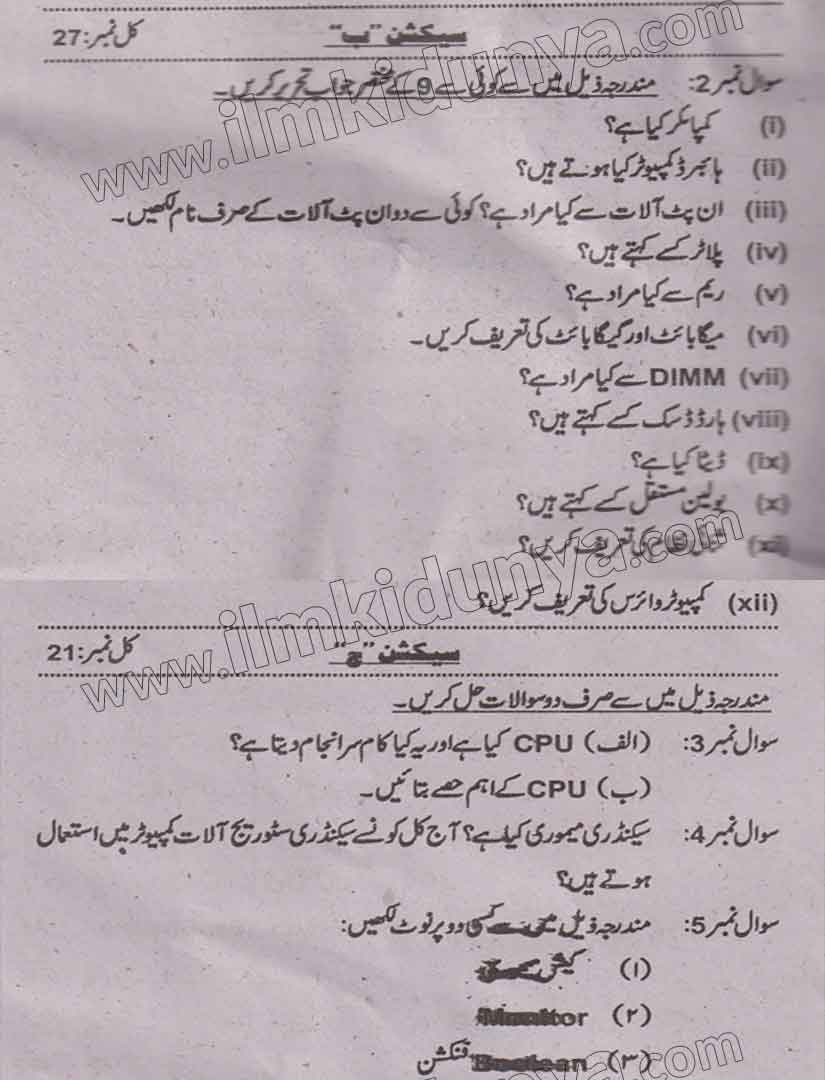 سیکشن "ب" کل نمبر: 27
سوال نمبر 2: مندرجہ ذیل میں سے کوئی سے 9 کے مختصر جواب تحریر کریں۔
(i) کمپائلر کیا ہے؟
(ii) ہائبرڈ کمپیوٹر کیا ہوتے ہیں؟
(iii) ان پٹ آلات سے کیا مراد ہے؟ کوئی سے دو ان پٹ آلات کے صرف نام لکھیں۔
(iv) پلاٹر کسے کہتے ہیں؟
(v) ریم سے کیا مراد ہے؟
(vi) میگا بائٹ اور گیگا بائٹ کی تعریف کریں۔
(vii) DIMM سے کیا مراد ہے؟
(viii) ہارڈ ڈسک کسے کہتے ہیں؟
(ix) ڈیٹا کیا ہے؟
(x) بولین مستقل کسے کہتے ہیں؟
(xi) نظام کی تعریف کریں؟
(xii) کمپیوٹر وائرس کی تعریف کریں؟
www.ilmkidunya.com
سیکشن "ج" کل نمبر: 21
مندرجہ ذیل میں سے صرف دو سوالات حل کریں۔
سوال نمبر 3: (الف) CPU کیا ہے اور یہ کیا کام سرانجام دیتا ہے؟
(ب) CPU کے اہم حصے بتائیں۔
سوال نمبر 4: سیکنڈری میموری کیا ہے؟ آج کل کونسے سیکنڈری سٹوریج آلات کمپیوٹر میں استعمال
ہوتے ہیں؟
سوال نمبر 5: مندرجہ ذیل میں سے کسی دو پر نوٹ لکھیں:
(۱) کیش
(۲) Monitor
(۳) Boolean فنکشن
www.ilmkidunya.com